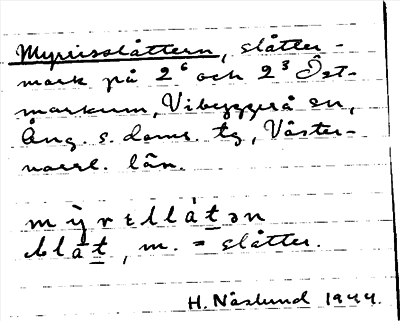 Myrrisslåttern, slåtter-
mark på 2⁶ och 2³ Öst-
markum, Vibyggerå sn,
Ång. s. doms. tg, Väster-
norrl. län.
m y̆ r ɛ l l å t ə n
slåt, m. = slåtter.
H. Näslund 1944.